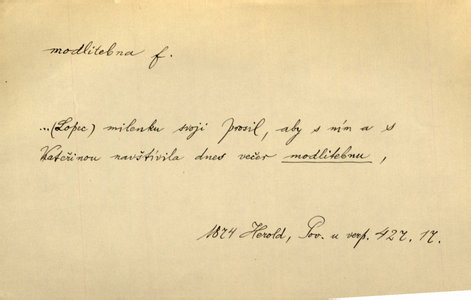 modlitebna f.
...(Lopec) milenku svoji prosil, aby s ním a s
Kateřinou navštívila dnes večer modlitebnu,
1874 Herold, Pov. u verp. 427. 17.